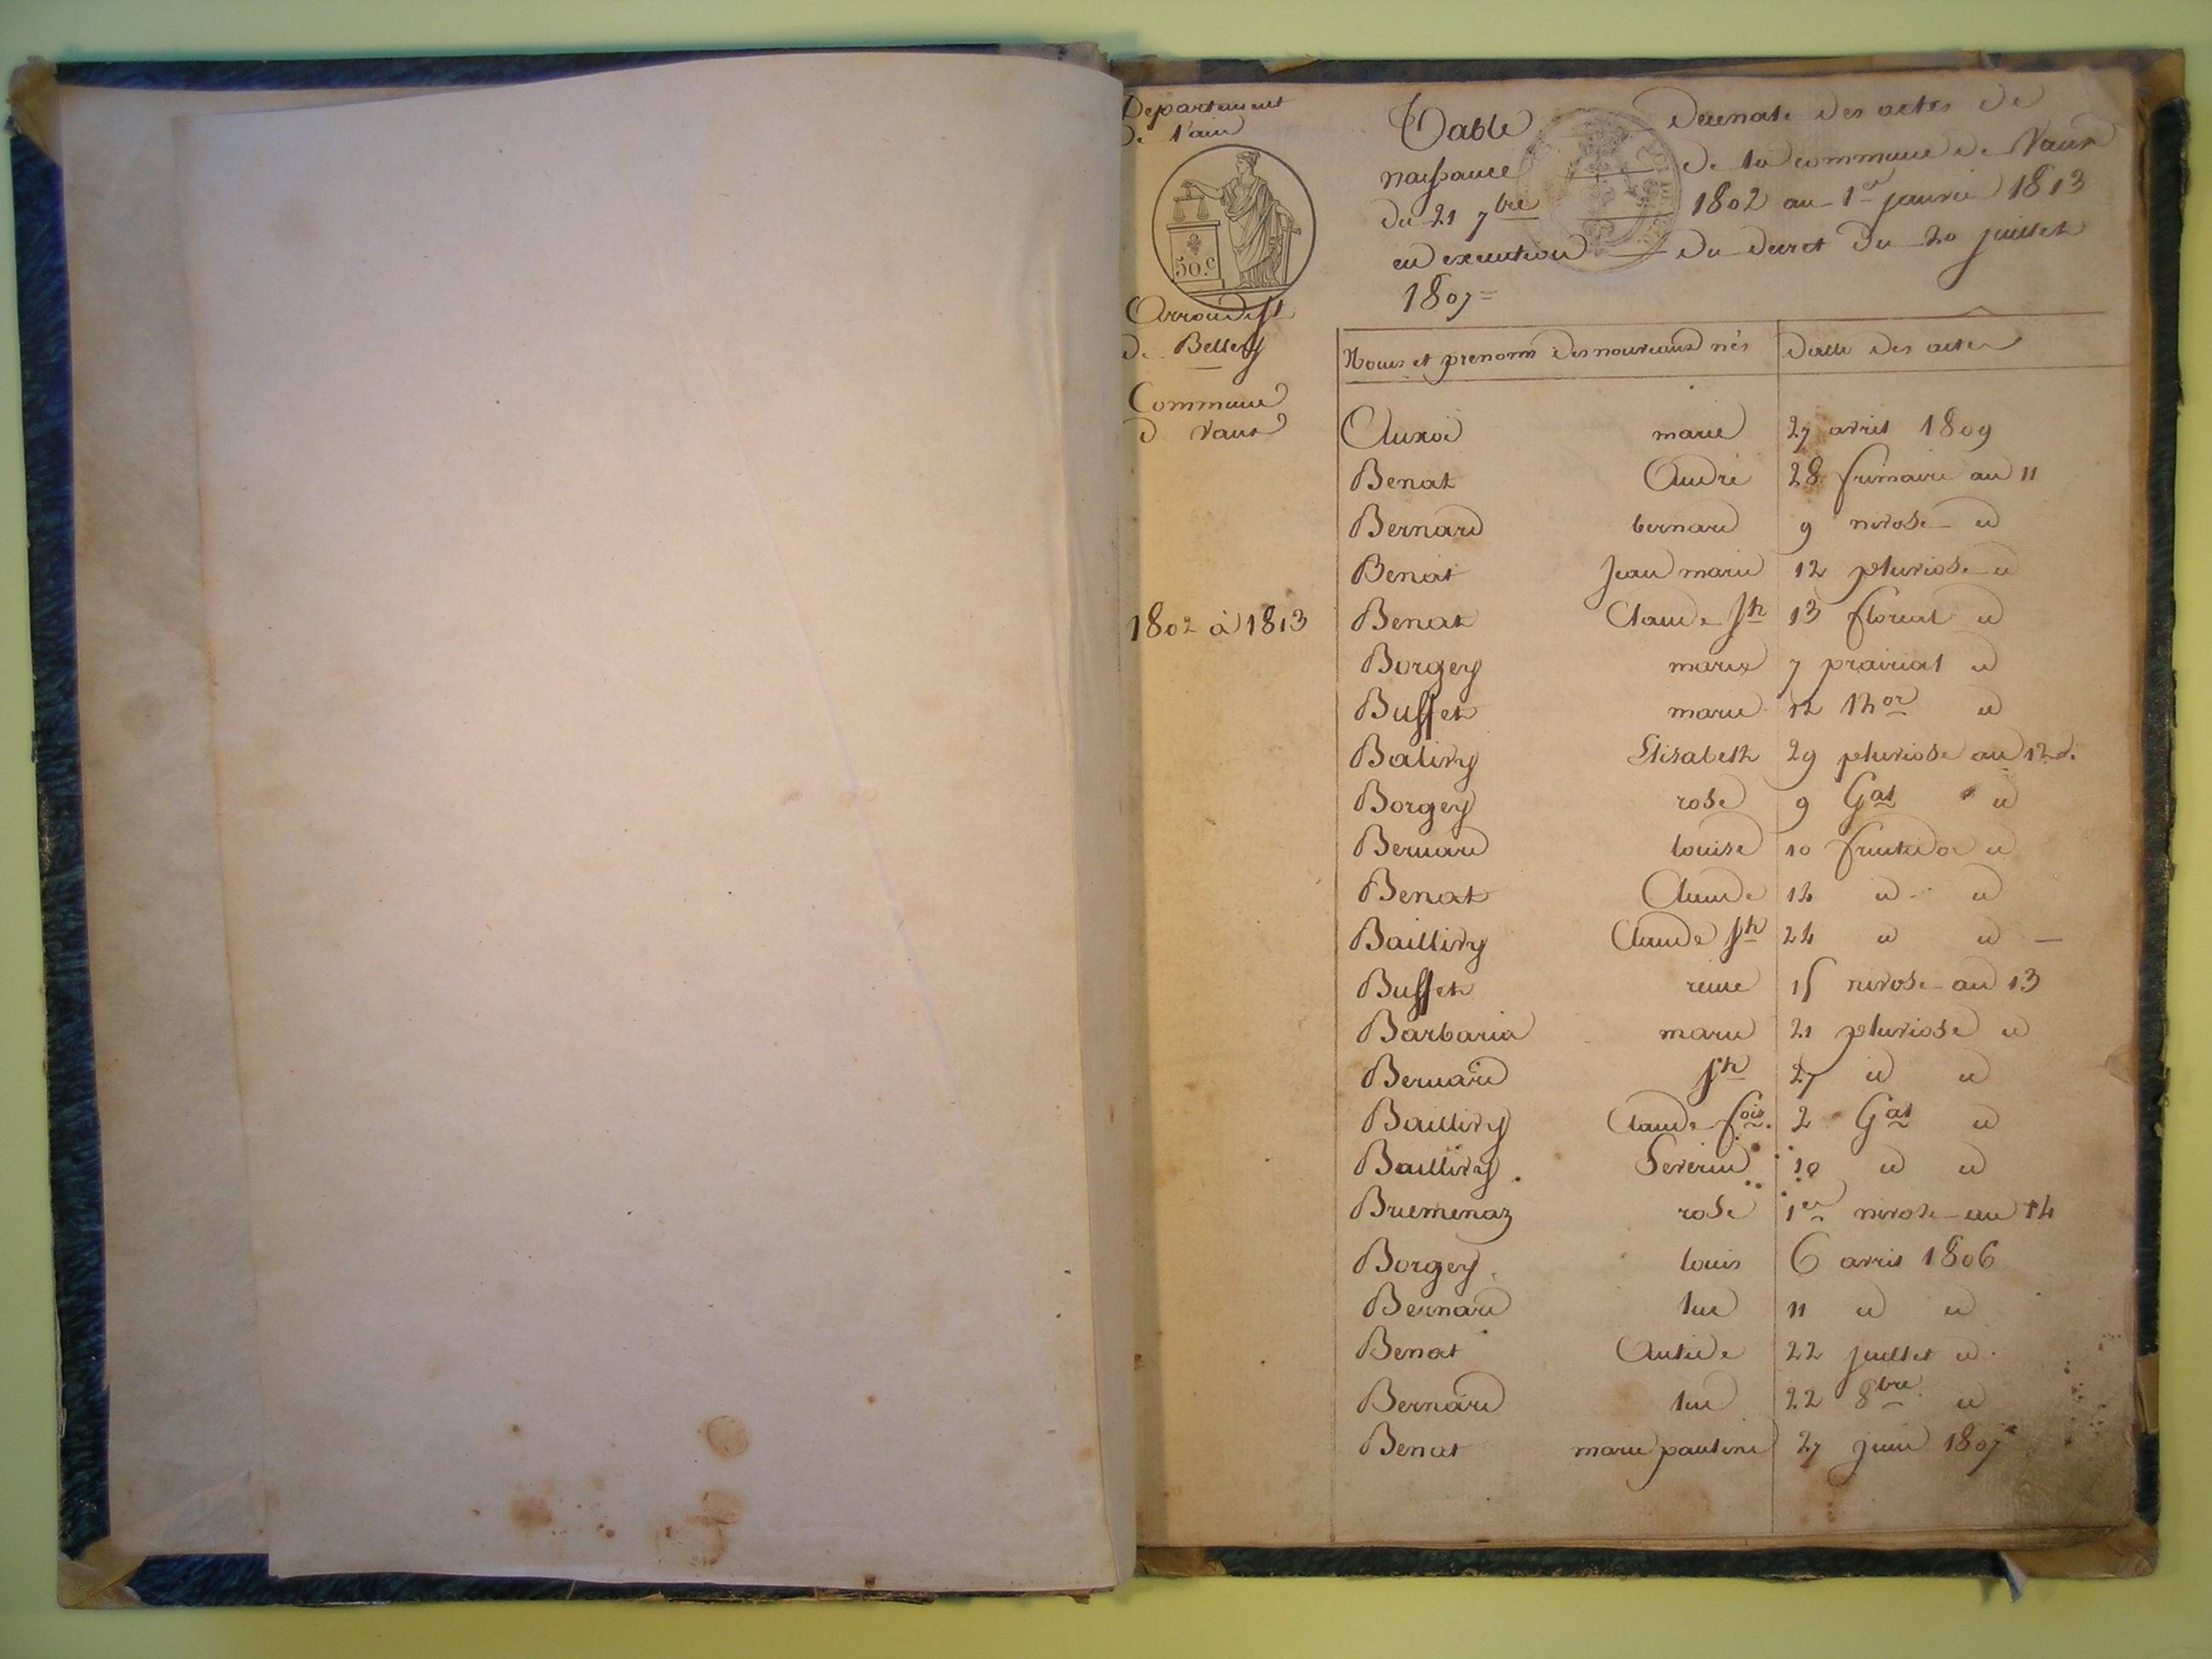 Departement
de l'ain
50.c
Arrondisst
de Belley
Commune
de Vaux
1802 à 1813
Table decenale des actes de
naissance de la commune de Vaux
du 21 7bre 1802 au 1er janvier 1813
en execution du decret du 20 juillet
1807
Noms et prenoms des nouveaux nés datte des actes
marie 27 avril 1809
Benat André 28 frimaire an 11
Bernard bernard 9 nivose id
Benat Jean marie 12 pluviose id
Benat Claude jh 13 floreal id
Borgey marie 7 prairial id
Buffet marie 12 thor id
Balivy Elisabeth 29 pluviose an 12
Borgey rose 9 Gal id
Bernard louise 10 fructidor id
Benat Claude 14 id id
Baillivy Claude jh 24 id id
Buffet reine 15 nivose an 13
Barbarin marie 21 pluviose id
Bernard jh 27 id id
Baillivy Claude fois 2 Gal id
Baillivy Severin 10 id id
Bruemenaz rose 1er nivose an 14
Borgey louis 6 avril 1806
Bernard luc 11 id id
Benat Antide 22 juillet id
Bernard luc 22 8bre id
Benat marie pauline 27 juin 1807